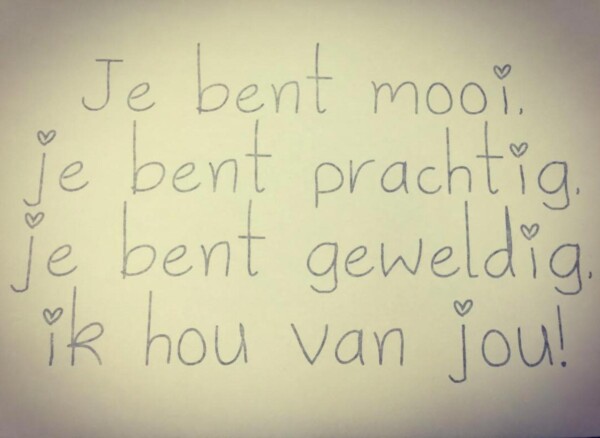 Je bent mooi.
je bent prachtig.
je bent geweldig.
ik hou van jou!